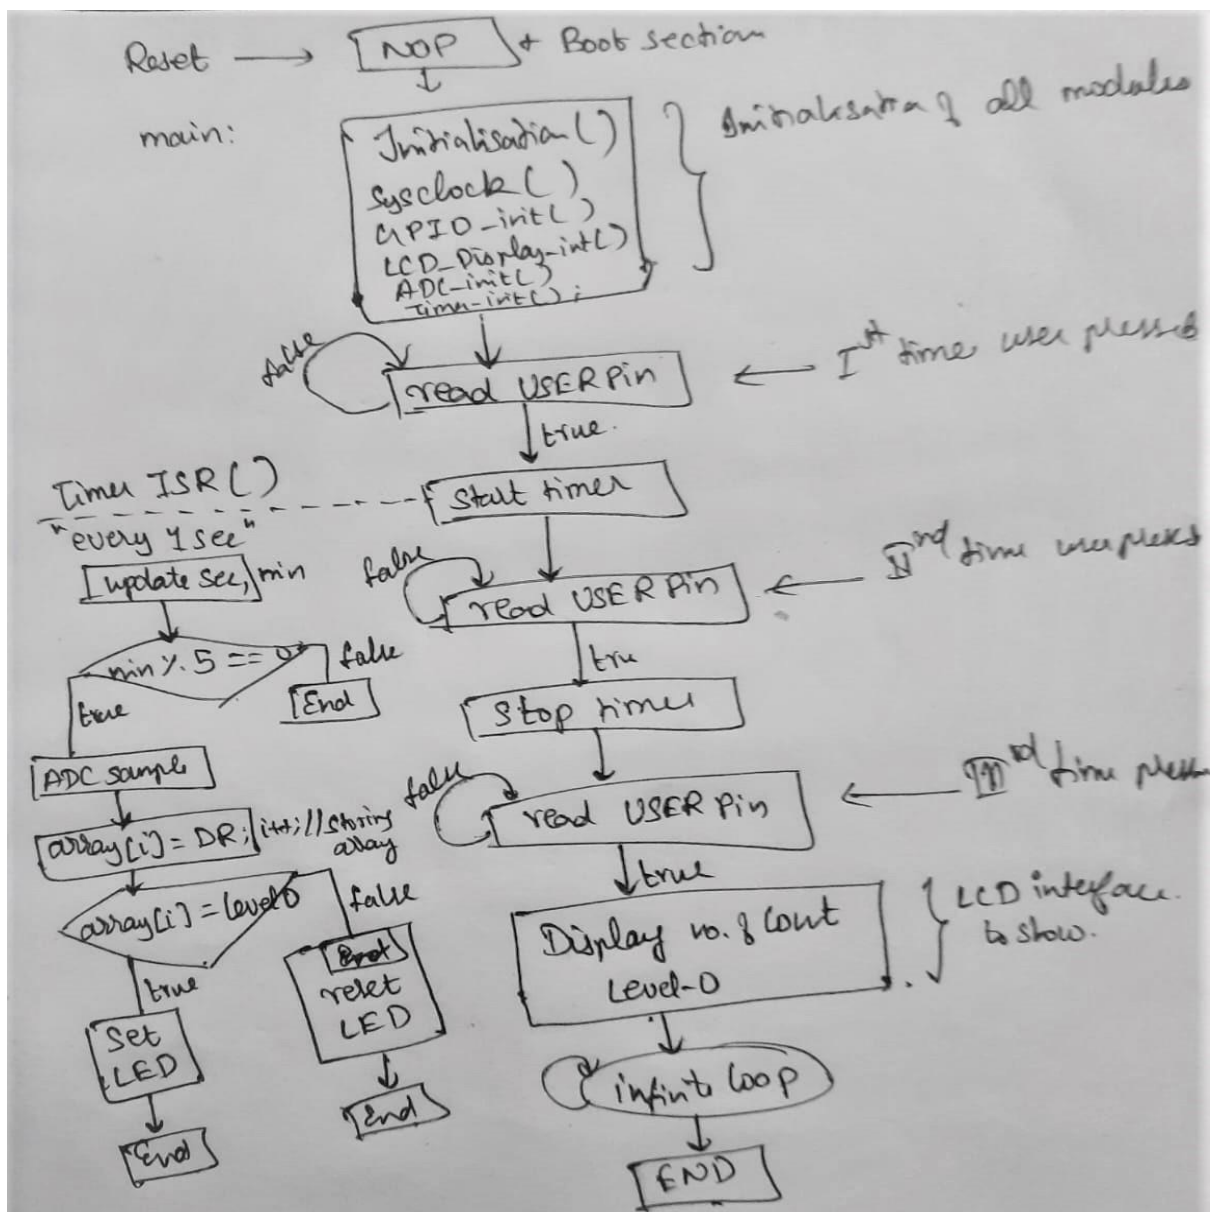 Reset → NOP + Boot section
main:
Initialisation()
Sysclock()
GPIO_init()
LCD_Display_int()
ADC_init()
Timer_init();
Initialisation of all modules
false
read USER Pin
Ist time user pressed
true.
Timer ISR()
Start timer
"every 1 sec"
update sec, min
false
read USER Pin
IInd time user press
min % 5 == 0
false
true
true
End
Stop timer
ADC sample
false
read USER Pin
IIIrd time press
array[i] = DR; i++; // storing
array
true
array[i] = level0
false
Display no. of Count
Level-0
LCD interface.
to show.
true
End
reset
LED
Set
LED
infinite loop
End
End
END